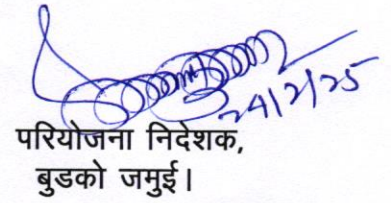 24/2/25
परियोजना निदेशक,
बुडको जमुई।